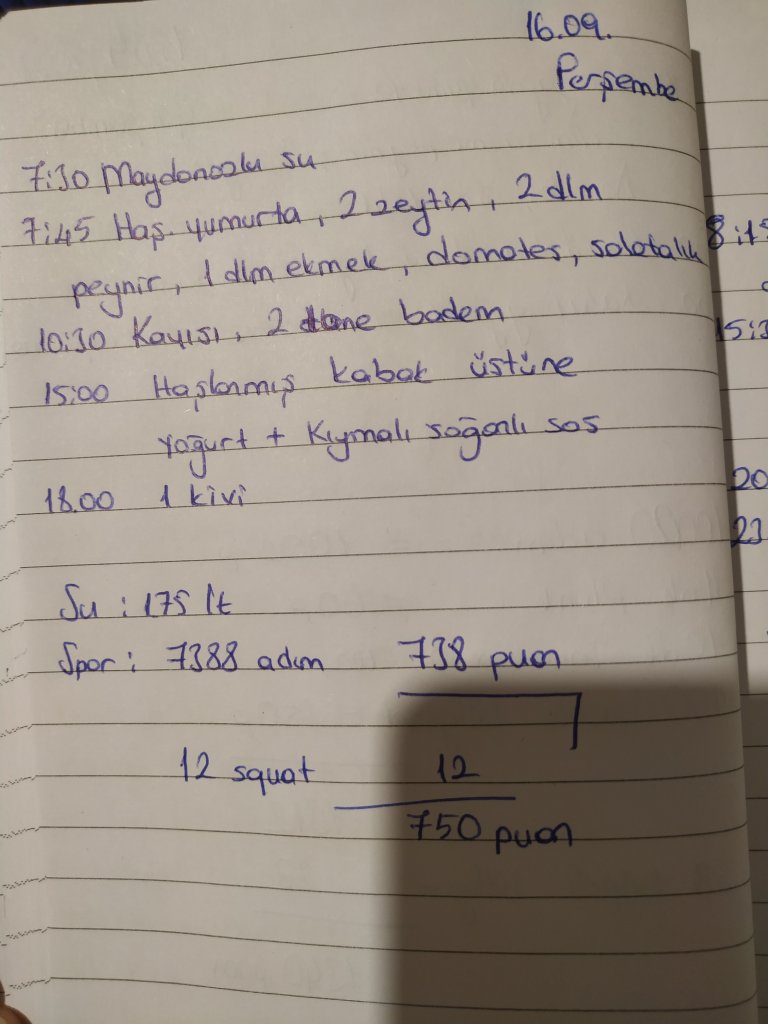 16.09.
Perşembe
7:30 Maydonozlu su
7:45 Haş. yumurta, 2 zeytin, 2 dlm
peynir, 1 dlm ekmek, domates, salatalık
10:30 Kayısı, 2 tane badem
15:00 Haşlanmış kabak üstüne
yoğurt + Kıymalı soğanlı sos
18.00 1 kivi
Su : 175 lt
Spor : 7388 adım 738 puan
12 squat 12
750 puan
15:3
20
23